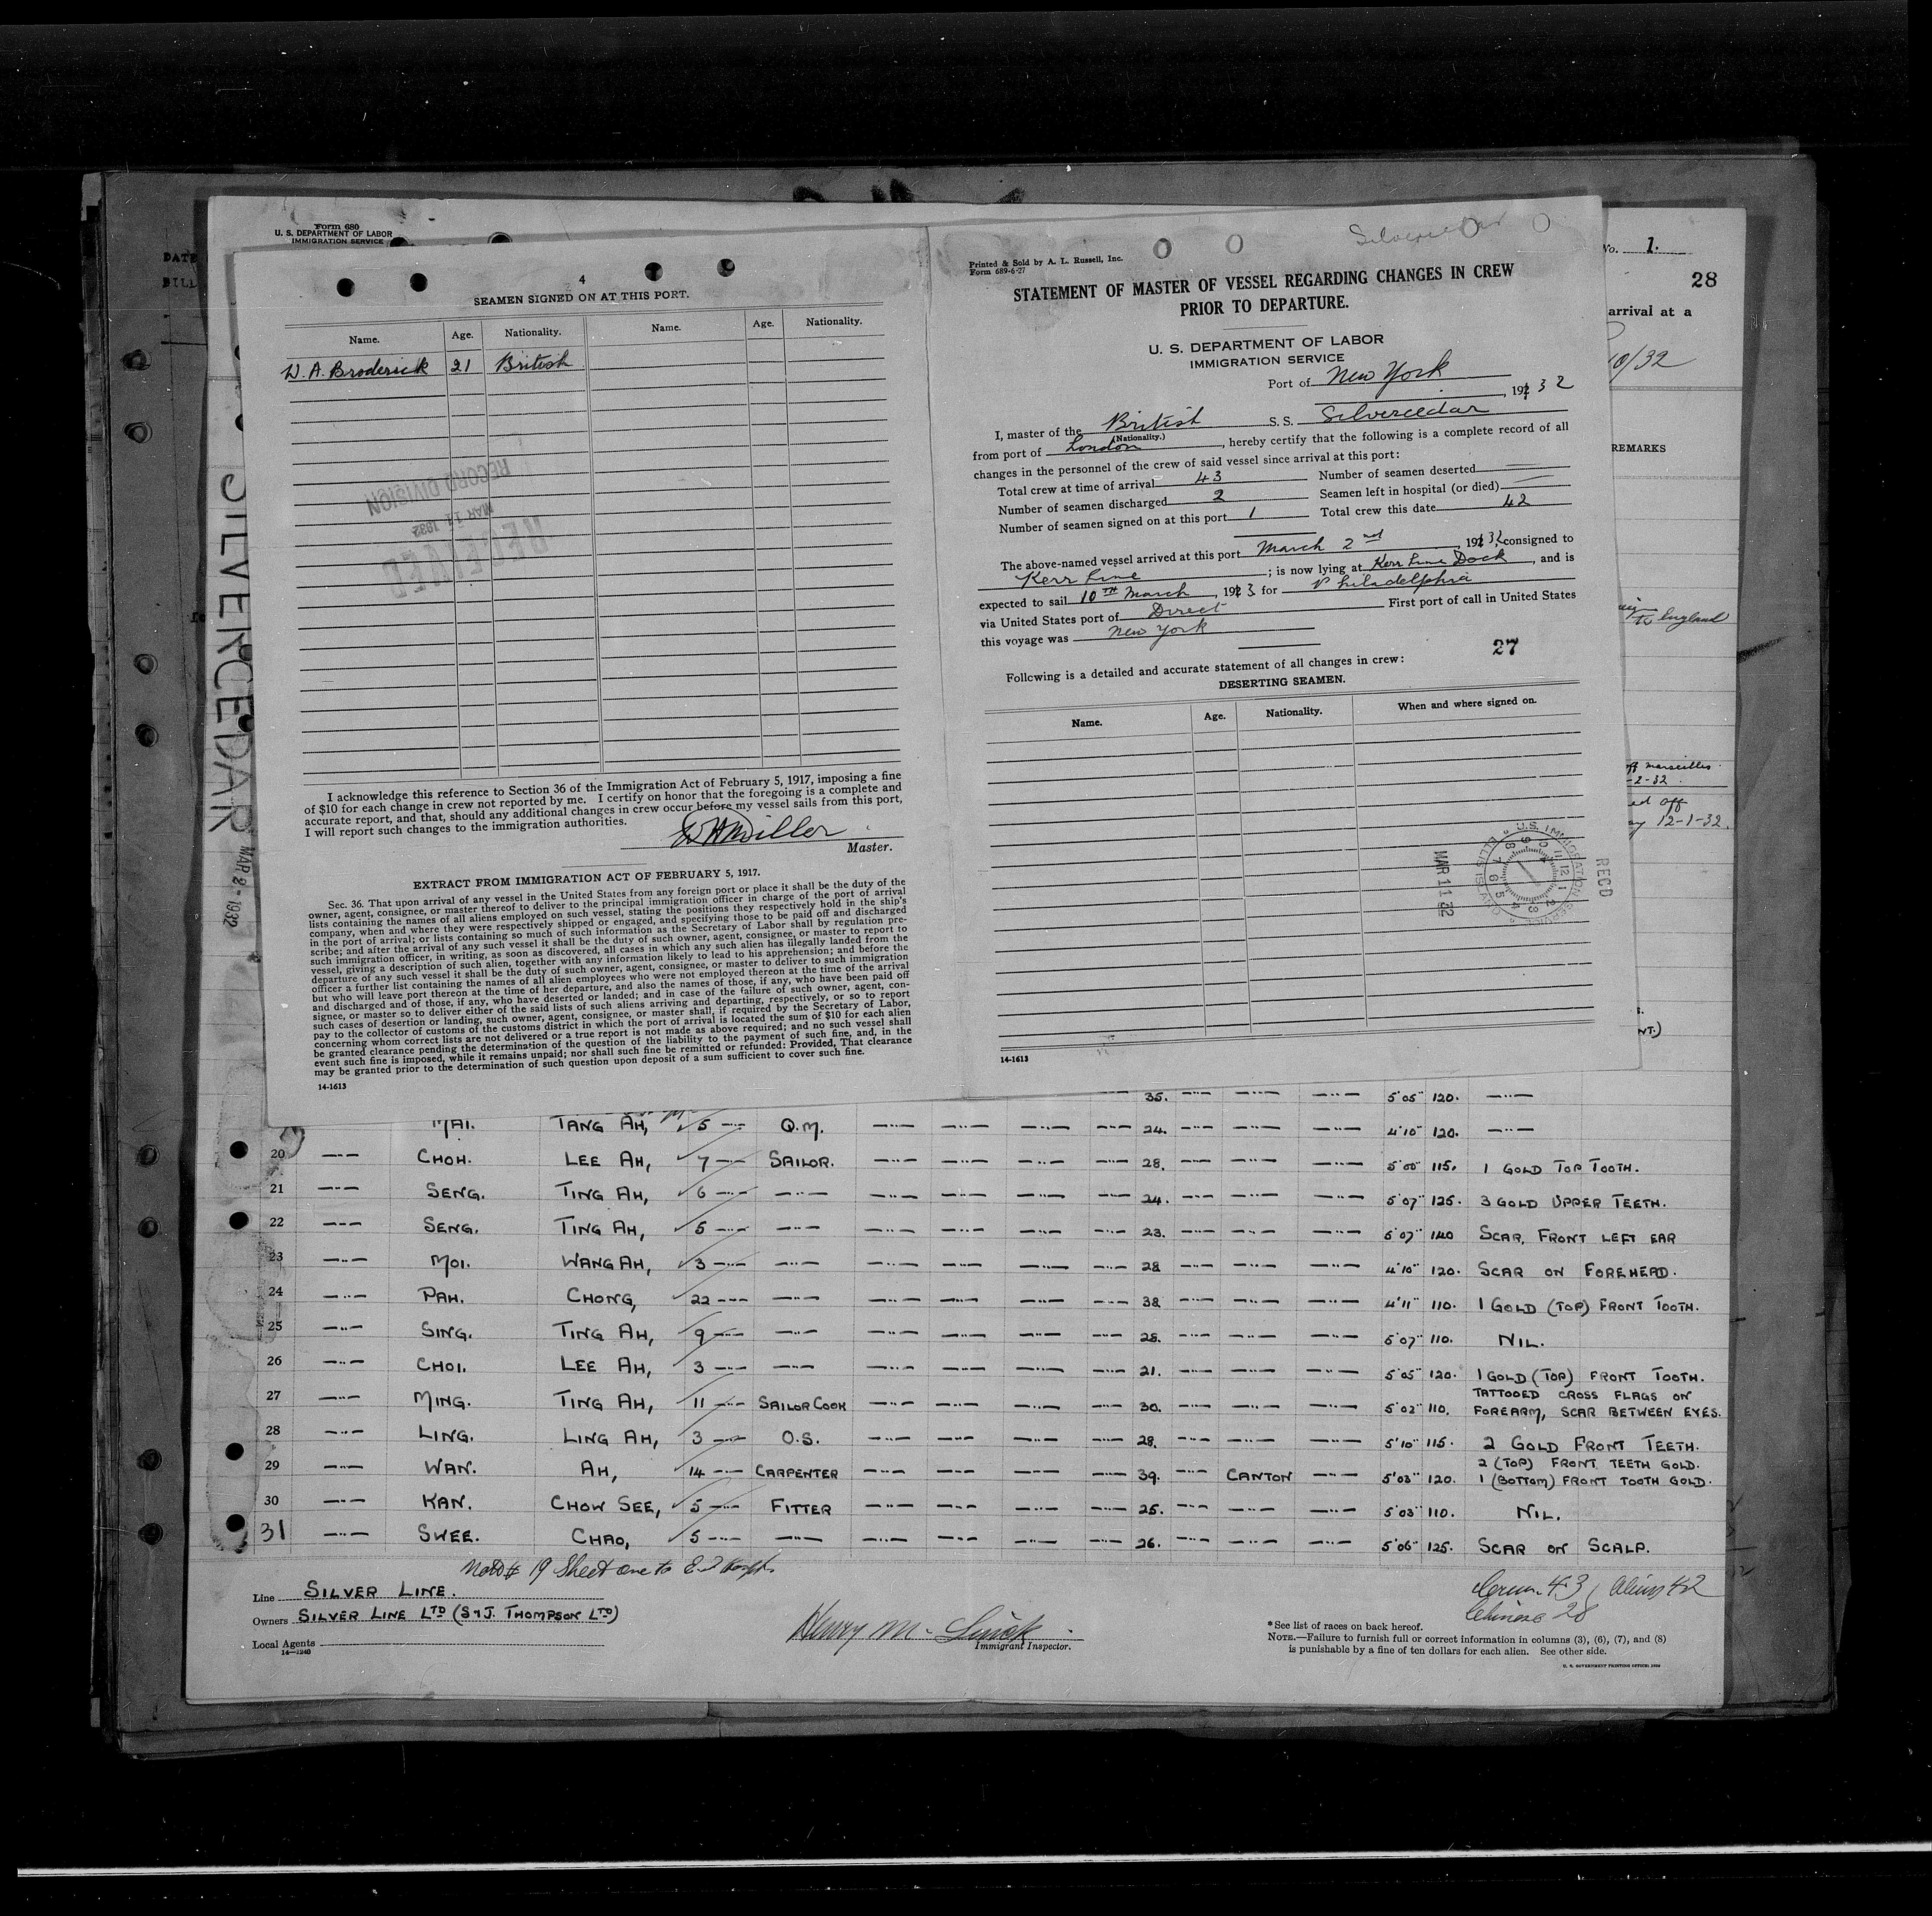 Form 680
U. S. DEPARTMENT OF LABOR
IMMIGRATION SERVICE
DATE
SILVERCEDAR
MAR 2 - 1932
4
SEAMEN SIGNED ON AT THIS PORT.
Name. Age. Nationality. Name. Age. Nationality.
W. A. Broderick 21 British
RECEIVED
MAR 11 1932
RECORD DIVISION
I acknowledge this reference to Section 36 of the Immigration Act of February 5, 1917, imposing a fine
of $10 for each change in crew not reported by me. I certify on honor that the foregoing is a complete and
accurate report, and that, should any additional changes in crew occur before my vessel sails from this port,
I will report such changes to the immigration authorities.
Miller
Master.
EXTRACT FROM IMMIGRATION ACT OF FEBRUARY 5, 1917.
Sec. 36. That upon arrival of any vessel in the United States from any foreign port or place it shall be the duty of the
owner, agent, consignee, or master thereof to deliver to the principal immigration officer in charge of the port of arrival
lists containing the names of all aliens employed on such vessel, stating the positions they respectively hold in the ship's
company, when and where they were respectively shipped or engaged, and specifying those to be paid off and discharged
in the port of arrival; or lists containing so much of such information as the Secretary of Labor shall by regulation pre-
scribe; and after the arrival of any such vessel it shall be the duty of such owner, agent, consignee, or master to report to
such immigration officer, in writing, as soon as discovered, all cases in which any such alien has illegally landed from the
vessel, giving a description of such alien, together with any information likely to lead to his apprehension; and before the
departure of any such vessel it shall be the duty of such owner, agent, consignee, or master to deliver to such immigration
officer a further list containing the names of all alien employees who were not employed thereon at the time of the arrival
but who will leave port thereon at the time of her departure, and also the names of those, if any, who have been paid off
and discharged and of those, if any, who have deserted or landed; and in case of the failure of such owner, agent, con-
signee, or master so to deliver either of the said lists of such aliens arriving and departing, respectively, or so to report
such cases of desertion or landing, such owner, agent, consignee, or master shall, if required by the Secretary of Labor,
pay to the collector of customs of the customs district in which the port of arrival is located the sum of $10 for each alien
concerning whom correct lists are not delivered or a true report is not made as above required; and no such vessel shall
be granted clearance pending the determination of the question of the liability to the payment of such fine, and, in the
event such fine is imposed, while it remains unpaid; nor shall such fine be remitted or refunded: Provided, That clearance
may be granted prior to the determination of such question upon deposit of a sum sufficient to cover such fine.
14-1613
Silvercedar
Printed & Sold by A. L. Russell, Inc.
Form 689-6-27
STATEMENT OF MASTER OF VESSEL REGARDING CHANGES IN CREW
PRIOR TO DEPARTURE.
U. S. DEPARTMENT OF LABOR
IMMIGRATION SERVICE
Port of New York
, 192 32
I, master of the British S. S. Silvercedar
(Nationality.)
from port of London, hereby certify that the following is a complete record of all
changes in the personnel of the crew of said vessel since arrival at this port:
Total crew at time of arrival 43 Number of seamen deserted —
Number of seamen discharged 2 Seamen left in hospital (or died) —
Number of seamen signed on at this port 1 Total crew this date 42
The above-named vessel arrived at this port March 2nd, 192 32, consigned to
Kerr Line; is now lying at Kerr Line Dock, and is
expected to sail 10TH March, 192 3 for Philadelphia
via United States port of Direct First port of call in United States
this voyage was New York
27
Following is a detailed and accurate statement of all changes in crew:
DESERTING SEAMEN.
Name. Age. Nationality. When and where signed on.
U.S. IMMIGRATION SERVICE ELLIS ISLAND
RECD
MAR 11 32
14-1613
No. 1.
28
arrival at a
10/32
REMARKS
to England
off Marseilles
-2-32
off
12-1-32.
35. —"— —"— —"— 5'05" 120. —"—
MAI. TANG AH, 5 —"— Q.M. —"— —"— —"— —"— 24. —"— —"— —"— 4'10" 120. —"—
20 —"— CHOH. LEE AH, 7 —"— SAILOR. —"— —"— —"— —"— 28. —"— —"— —"— 5'00" 115. 1 GOLD TOP TOOTH.
21 —"— SENG. TING AH, 6 —"— —"— —"— —"— —"— —"— 24. —"— —"— —"— 5'07" 125. 3 GOLD UPPER TEETH.
22 —"— SENG. TING AH, 5 —"— —"— —"— —"— —"— —"— 23. —"— —"— —"— 5'07" 140 SCAR, FRONT LEFT EAR
23 —"— MOI. WANG AH, 3 —"— —"— —"— —"— —"— —"— 28 —"— —"— —"— 4'10" 120. SCAR ON FOREHEAD.
24 —"— PAH. CHONG, 22 —"— —"— —"— —"— —"— —"— 38 —"— —"— —"— 4'11" 110. 1 GOLD (TOP) FRONT TOOTH.
25 —"— SING. TING AH, 9 —"— —"— —"— —"— —"— —"— 28. —"— —"— —"— 5'07" 110. NIL.
26 —"— CHOI. LEE AH, 3 —"— —"— —"— —"— —"— —"— 21. —"— —"— —"— 5'05" 120. 1 GOLD (TOP) FRONT TOOTH.
27 —"— MING. TING AH, 11 —"— SAILOR COOK —"— —"— —"— —"— 30. —"— —"— —"— 5'02" 110. TATTOOED CROSS FLAGS ON
FOREARM, SCAR BETWEEN EYES.
28 —"— LING. LING AH, 3 —"— O.S. —"— —"— —"— —"— 28. —"— —"— —"— 5'10" 115. 2 GOLD FRONT TEETH.
29 —"— WAN. AH, 14 —"— CARPENTER —"— —"— —"— —"— 39. —"— CANTON —"— 5'03" 120. 2 (TOP) FRONT TEETH GOLD.
1 (BOTTOM) FRONT TOOTH GOLD.
30 —"— KAN. CHOW SEE, 5 —"— FITTER —"— —"— —"— —"— 25. —"— —"— —"— 5'03" 110. NIL.
31 —"— SWEE. CHAO, 5 —"— —"— —"— —"— —"— —"— 26. —"— —"— —"— 5'06" 125. SCAR ON SCALP.
19 Sheet one to
Line SILVER LINE.
Owners SILVER LINE LTD (S & J. THOMPSON LTD)
Local Agents
14—1240
Henry M.
Immigrant Inspector.
Crew 43 / Aliens 42
Chinese 28
*See list of races on back hereof.
NOTE.—Failure to furnish full or correct information in columns (3), (6), (7), and (8)
is punishable by a fine of ten dollars for each alien. See other side.
U. S. GOVERNMENT PRINTING OFFICE: